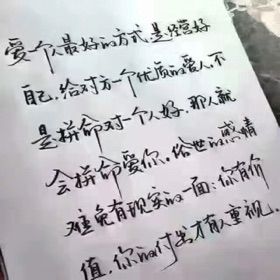 爱一个人最好的方式,是经营好
自己,给对方一个优质的爱人,不
是拼命对一个人好,那人就
会拼命爱你,俗世的感情
难免有现实的一面:你有价
值,你的付出才有人重视。